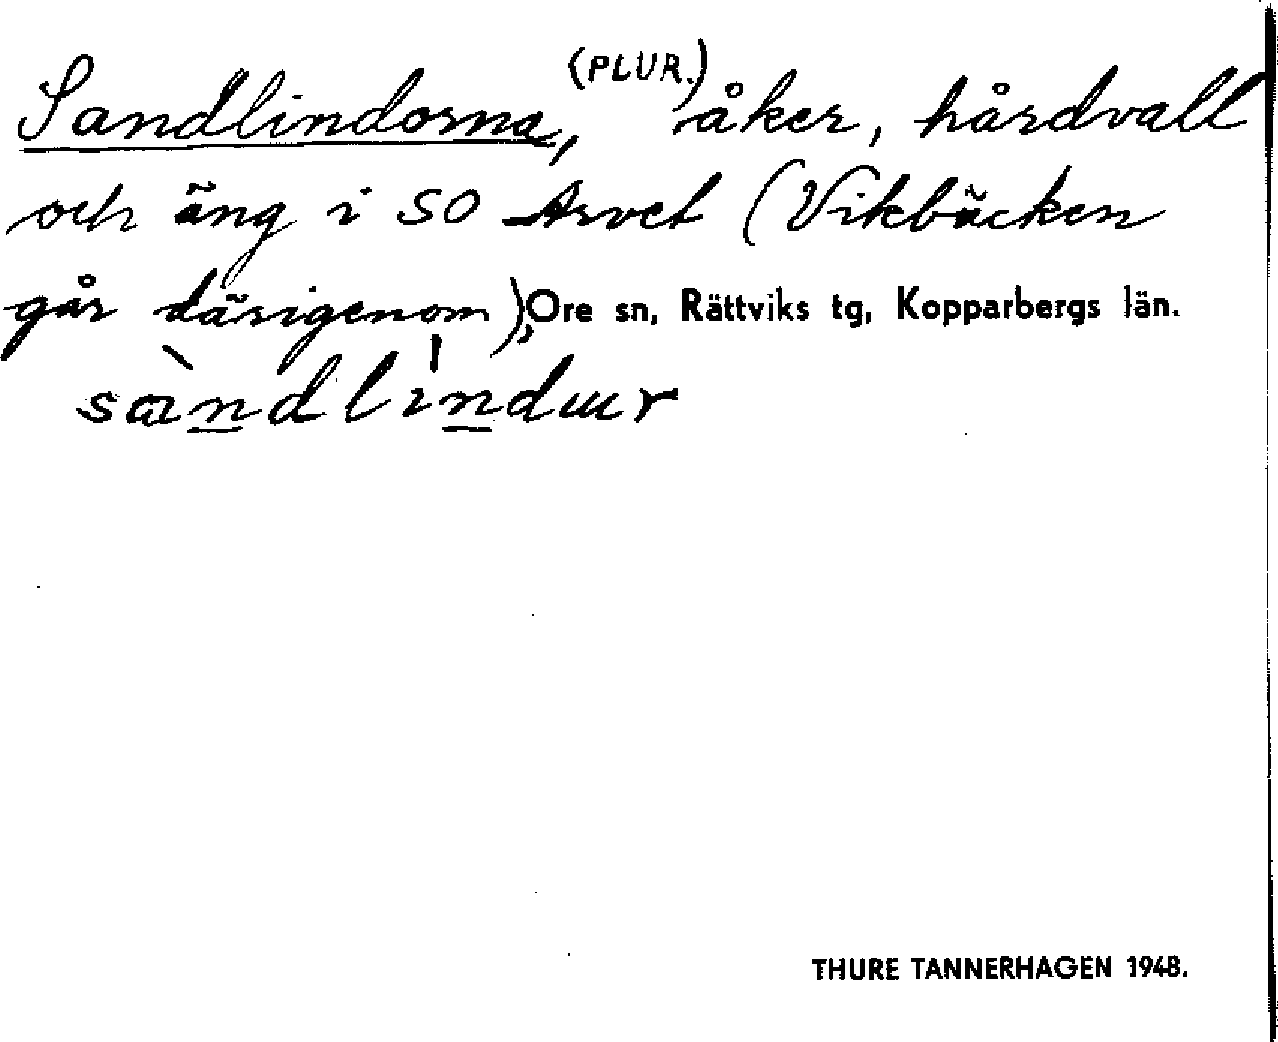 Sandlindorna, (PLUR.) åker, hårdvall
och äng i SO Arvet (Vikbäcken
går därigenom), Ore sn, Rättviks tg, Kopparbergs län.
sàndlìndɯr
THURE TANNERHAGEN 1948.